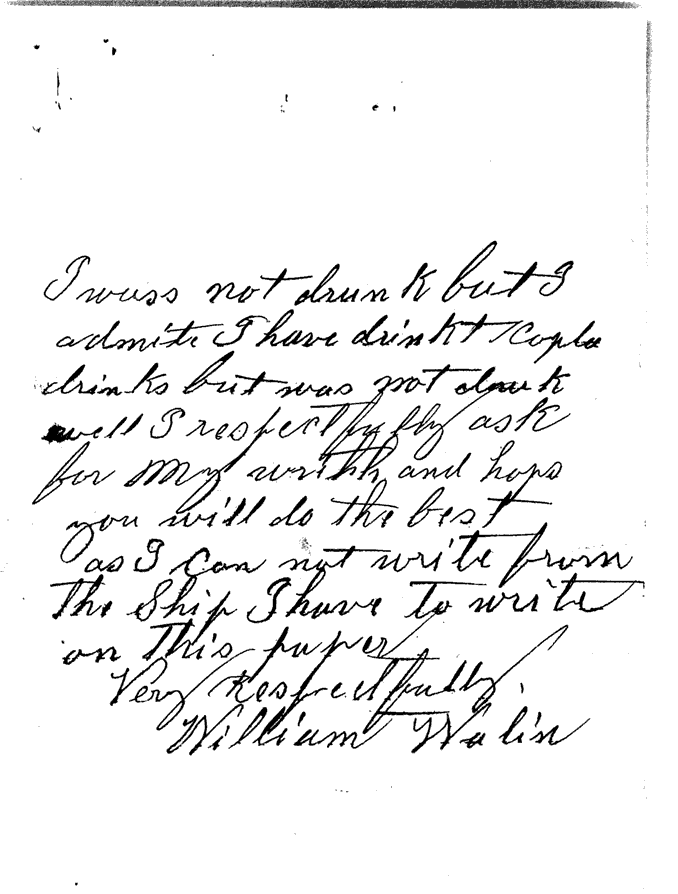 I wuss not drunk but I
admite I have drinkt Copla
drinks but was not drunk
well I respectfully ask
for My and hops
you will do the best
as I Can not write from
the Ship I have to write
on this paper
Very Respectfully,
William Walin